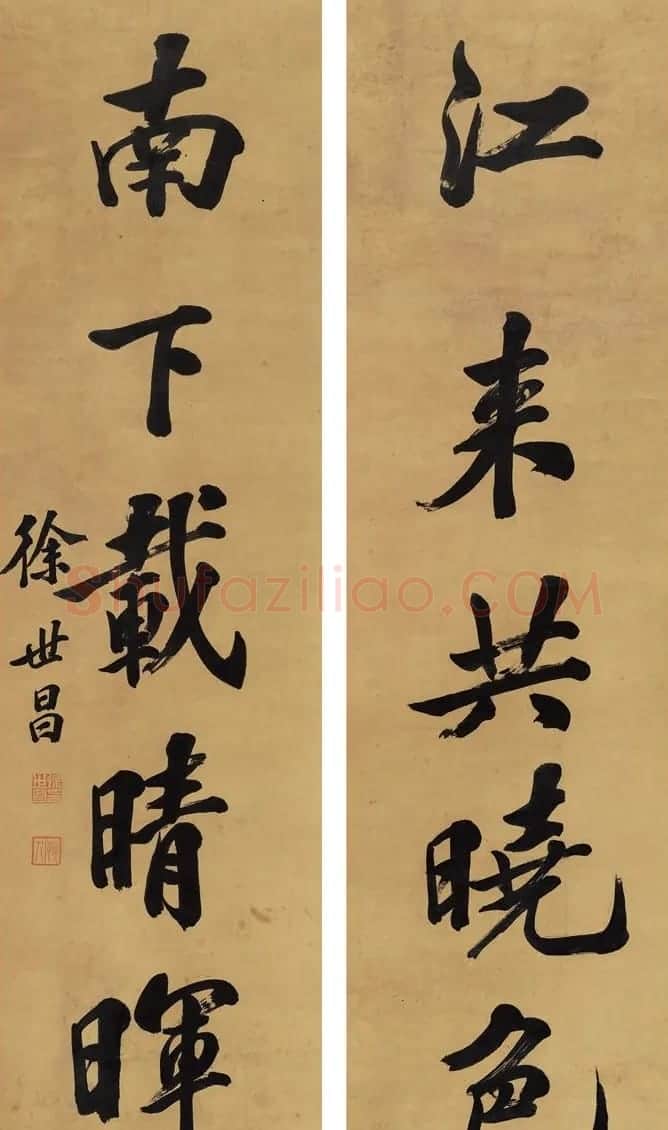 江来共曉色
南下載晴暉
徐世昌
Shufaziliao.COM